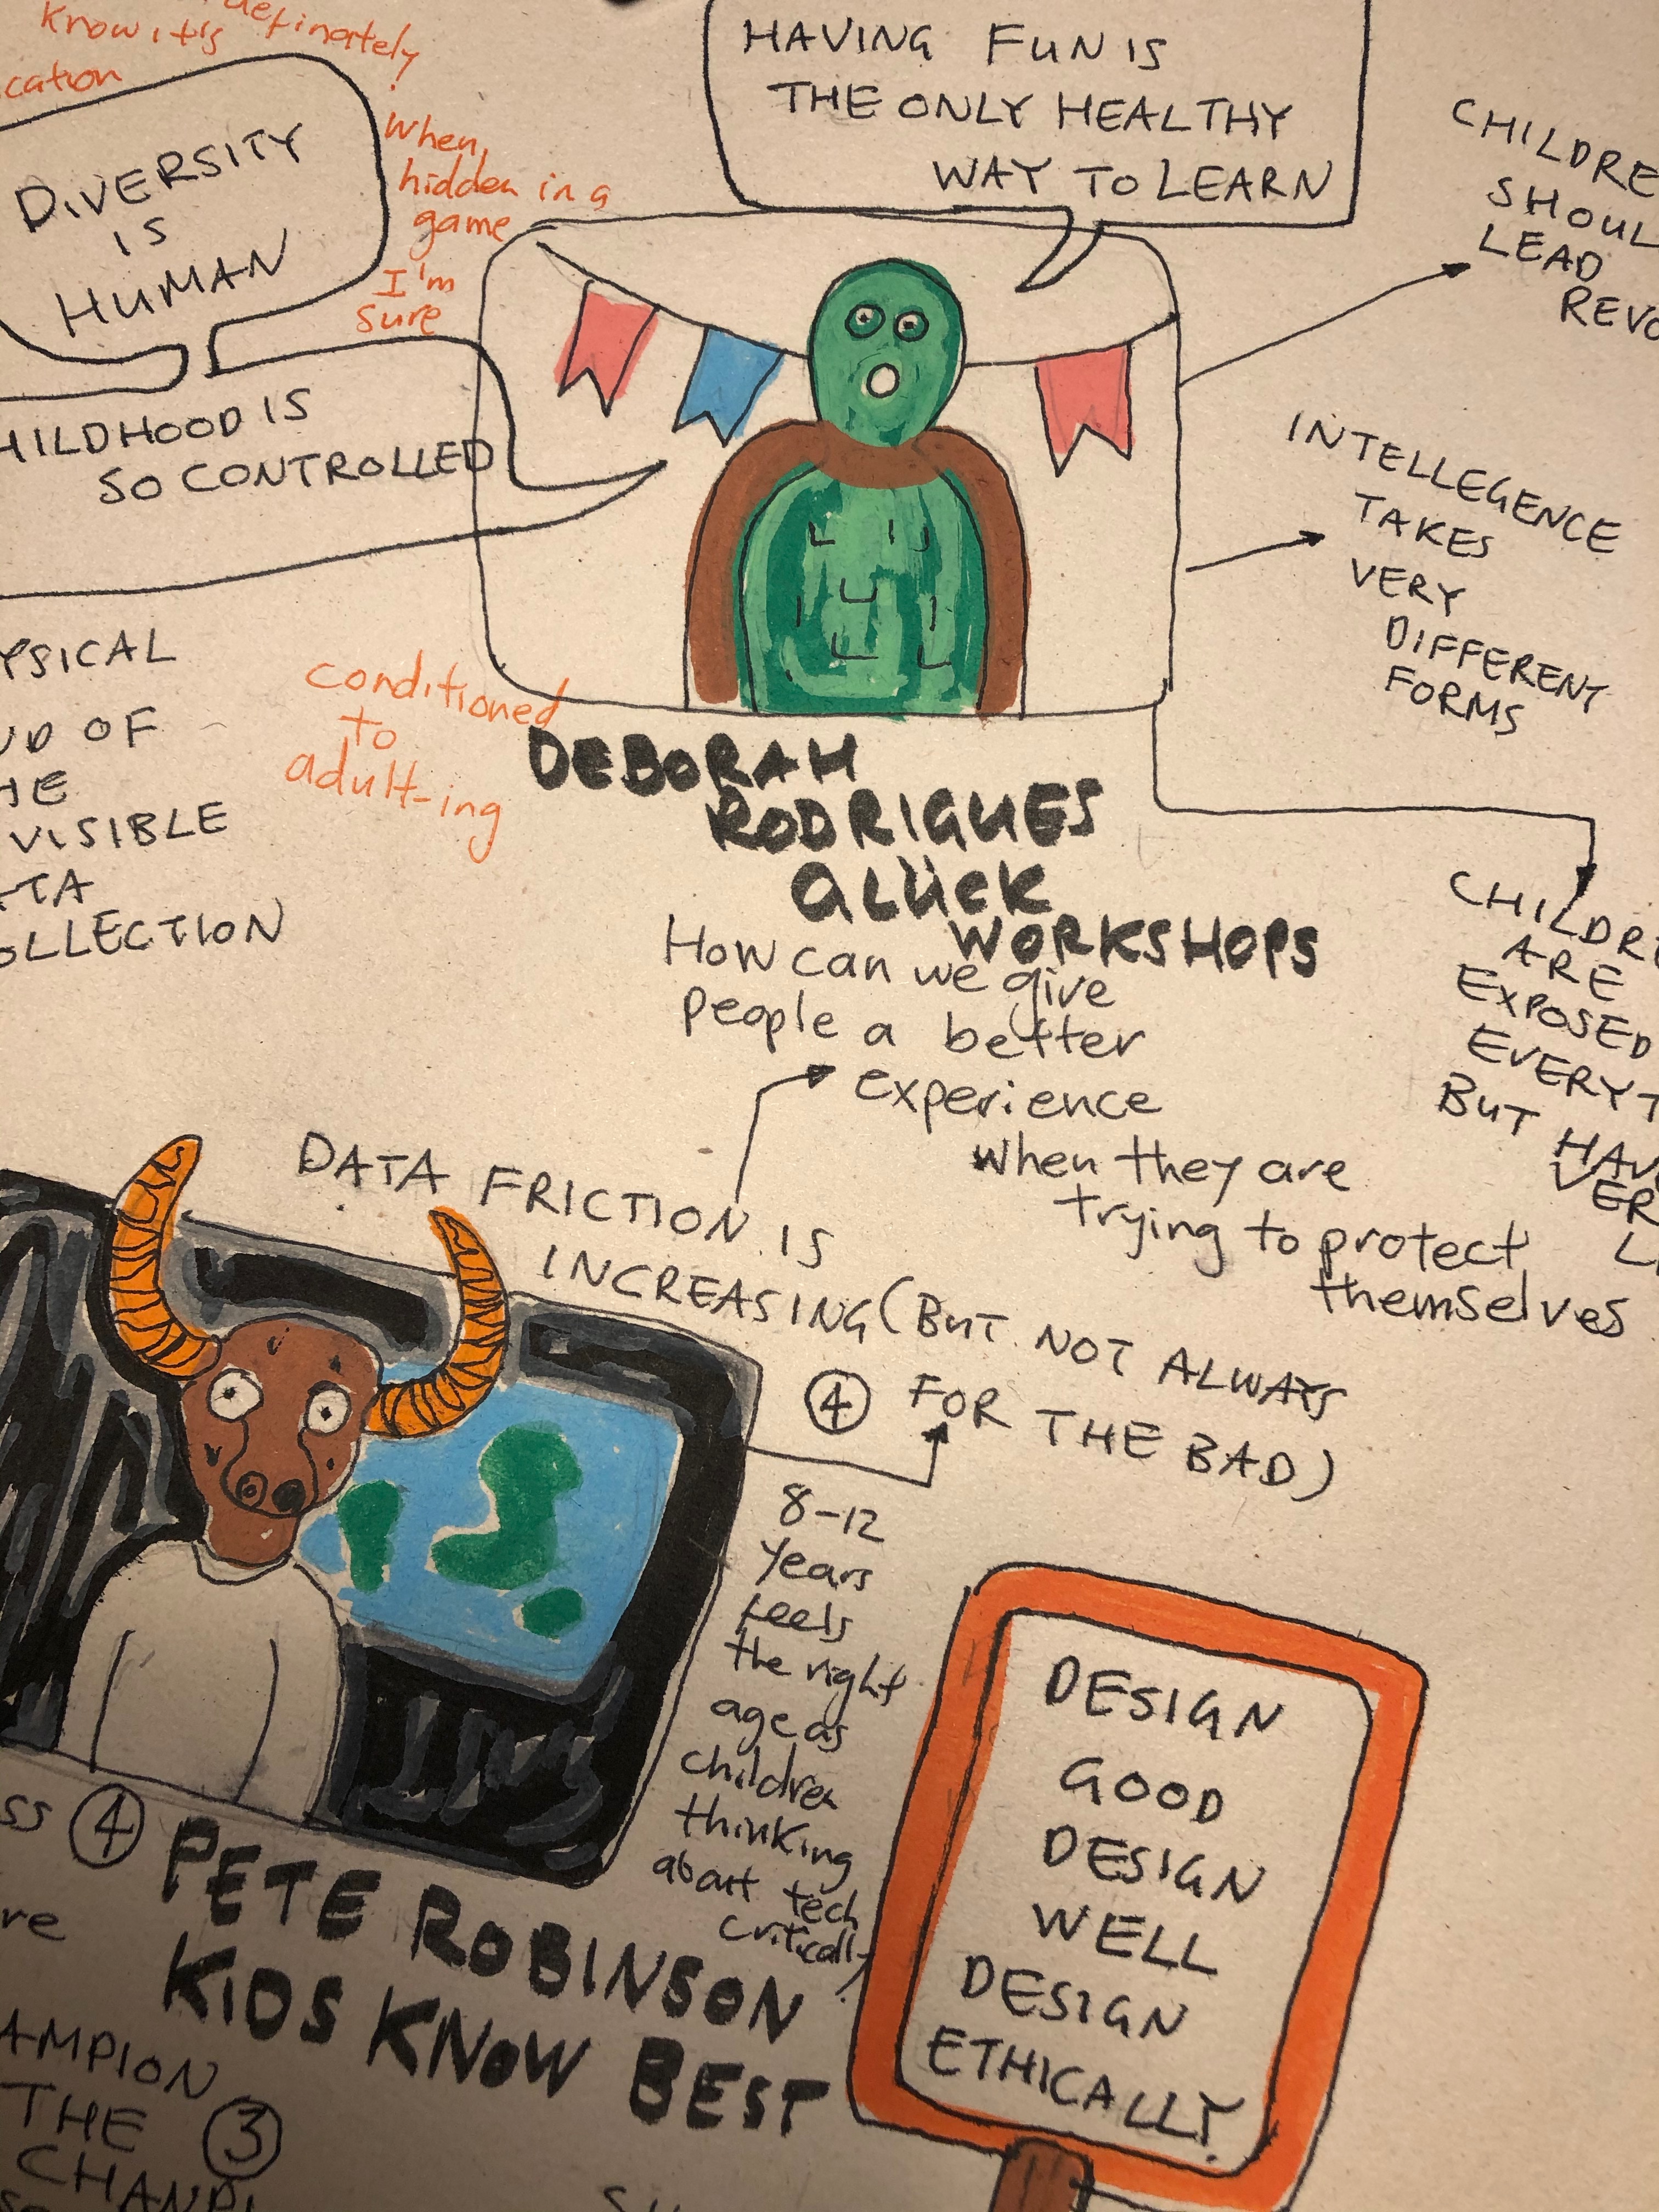 know it's definately!
cation
When
hidden in a
game
I'm
sure
DIVERSITY
IS
HUMAN
HAVING FUN IS
THE ONLY HEALTHY
WAY TO LEARN
CHILDRE
SHOUL
LEAD
REVO
HILDHOOD IS
SO CONTROLLED
INTELLEGENCE
TAKES
VERY
DIFFERENT
FORMS
YSICAL
UD OF
HE
VISIBLE
TA
OLLECTION
conditioned
to
adult-ing
DEBORAH
RODRIGUES
GLÜCK
WORKSHOPS
CHILDR
ARE
EXPOSED
EVERYT
BUT HAV
VER
L
How can we give
people a better
experience
when they are
trying to protect
themselves
DATA FRICTION IS
INCREASING (BUT NOT ALWAYS
④ FOR THE BAD)
8-12
years
feels
the right
age as
children
thinking
about tech
critically
ss ④
PETE ROBINSON
KIDS KNOW BEST
re
AMPION
THE ③
DESIGN
GOOD
DESIGN
WELL
DESIGN
ETHICALLY.